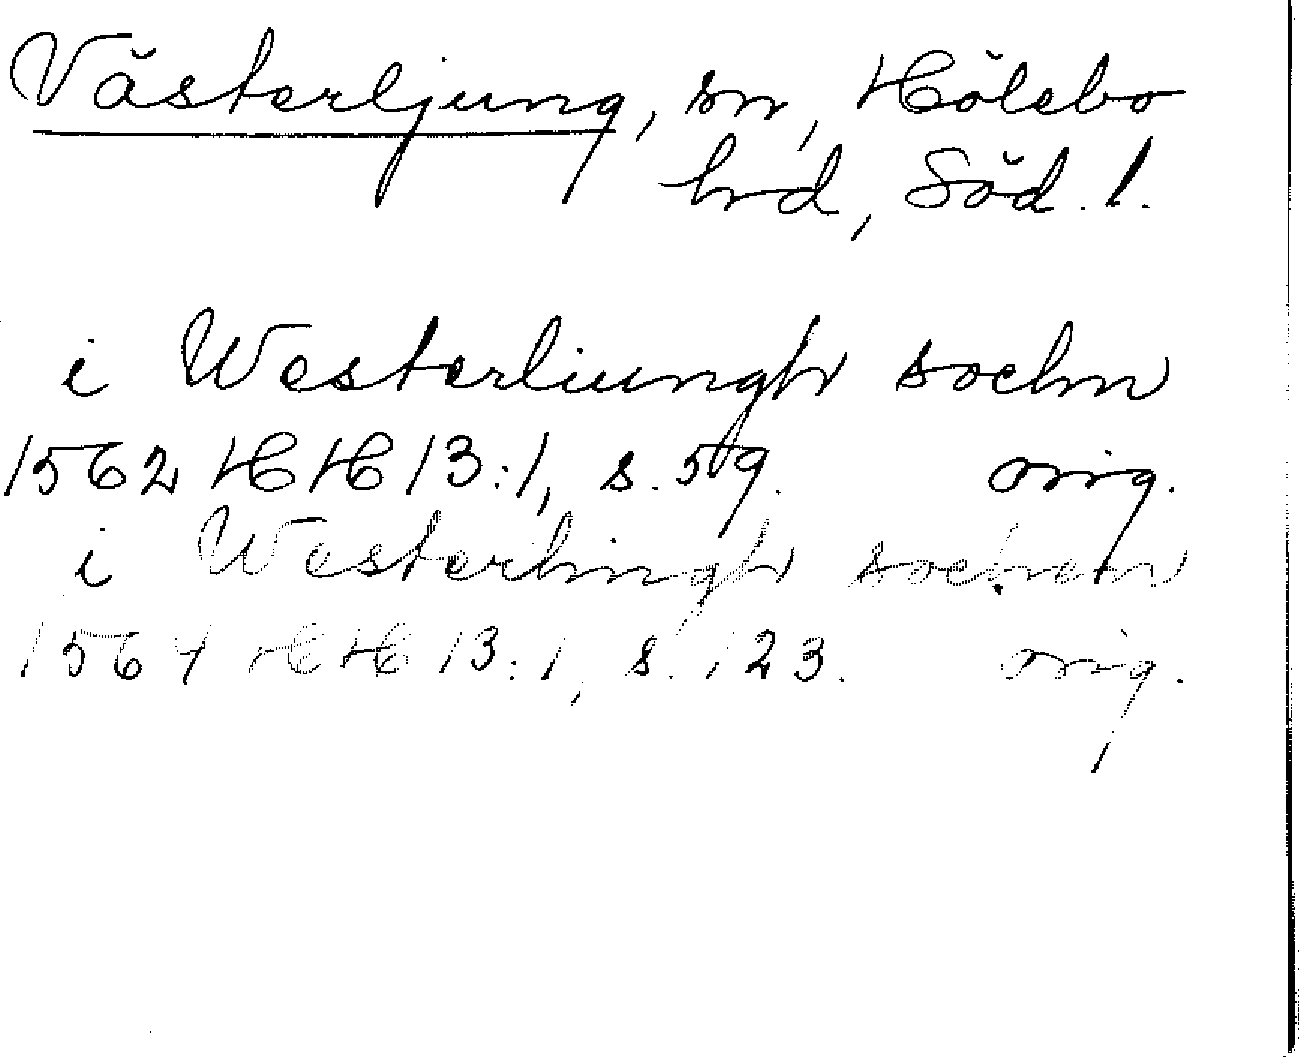 Västerljung, sn, Hölebo
hrd, Söd. l.
i Westerliungh sochn
1562 HH 13:1, s. 59. orig.
i Westerlingh sochen
1564 HH 13:1, s. 123. orig.